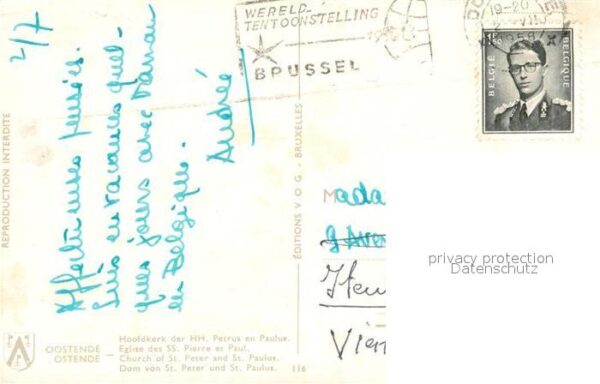 WERELD-
TENTOONSTELLING
BRUSSEL
19-20
1958
BELGIË
BELGIQUE
2/7
Affectueuses pensées.
Suis en vacances quel-
ques jours avec Maman
en Belgique.
Andrée
REPRODUCTION INTERDITE
ÉDITIONS V O G. BRUXELLES
Mada
privacy protection
Datenschutz
OOSTENDE
OSTENDE
Hoofdkerk der HH. Petrus en Paulus.
Eglise des SS. Pierre et Paul.
Church of St. Peter and St. Paulus.
Dom von St. Peter und St. Paulus.
116